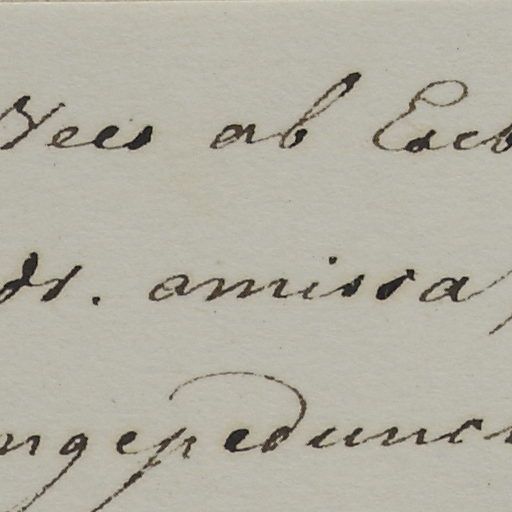 Nees ab Eseb
ds. amissa,
ngepedunc